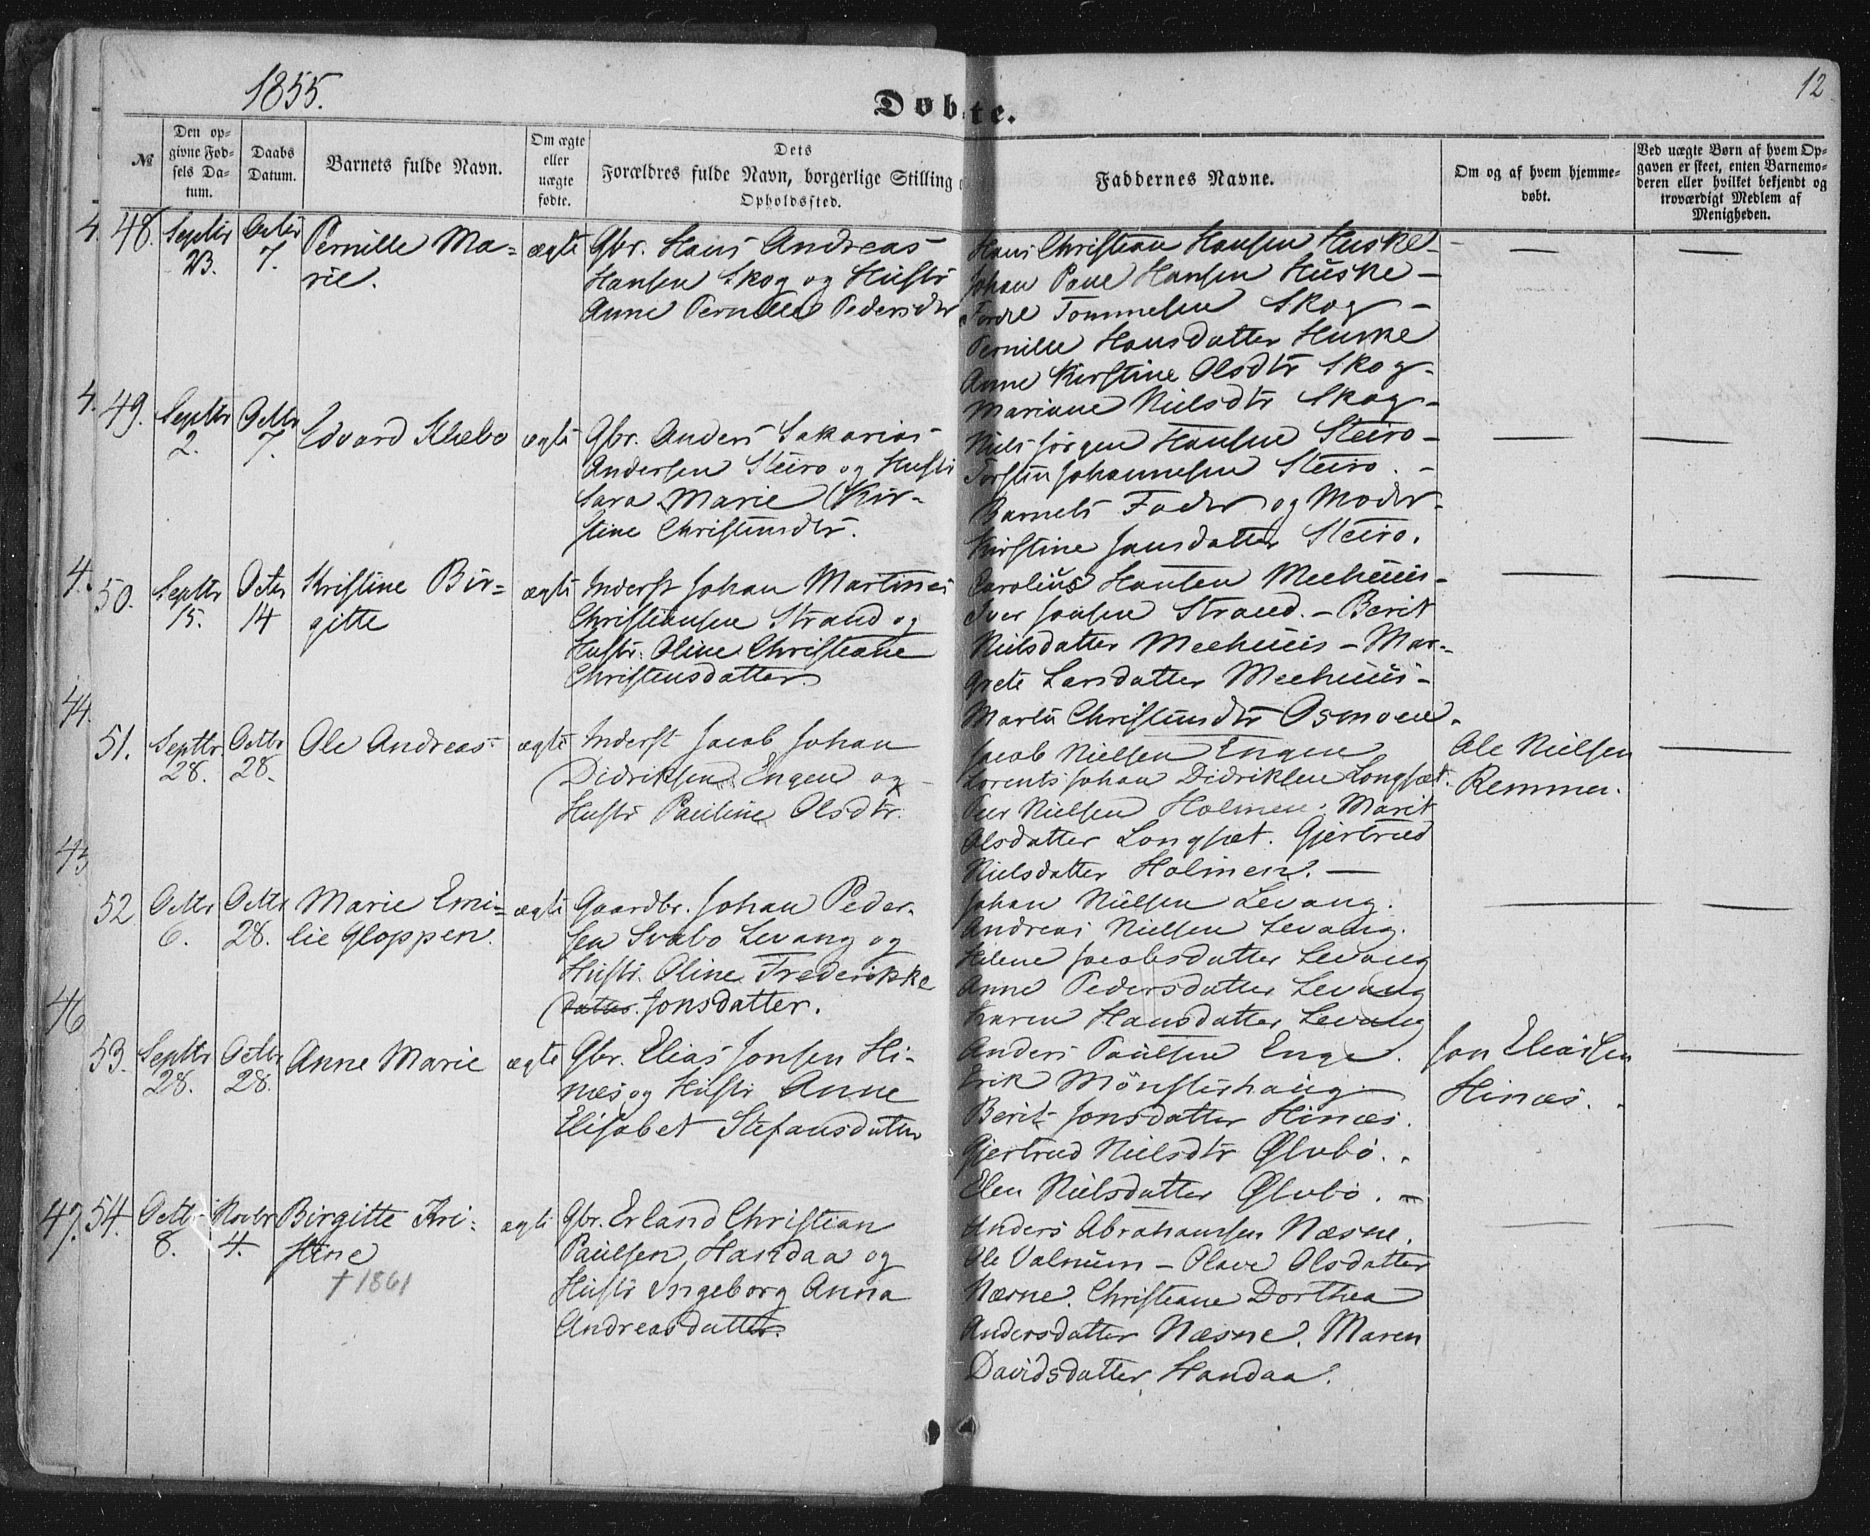 1855.
Døbte.
12
№
Den opgivne Fødsels Datum.
Daabs Datum.
Barnets fulde Navn.
Om ægte eller uægte fødte.
Dets Forældres fulde Navn, borgerlige Stilling Opholdssted.
Faddernes Navne.
Om og af hvem hjemmedøbt.
Ved uægte Børn af hvem Opgaven er skeet, enten Barnemoderen eller hvilket bekjendt og troværdigt Medlem af Menigheden.
48. Septbr 23. Octbr 7. Pernille Ma=
rie.
ægte
Gbr. Hans Andreas
Hansen Skog og Hustr
Anne Pernille Pedersdtr
Hans Christian Hansen Huske –
Johan Hansen Huske –
Tommesen Skog –
Pernille Hansdatter Huske
Anne Kirstine Olsdtr Skog –
Mariane Nielsdtr Skog –
49. Septbr 2. Octbr 7. Edvard Klæbo
ægte
Gbr. Anders Sakarias
Andersen Steiro og Hustr
Sara Marie Kir-
stine Christensdtr.
Niels Jørgen Hansen Steiro –
Torsten Johannesen Steiro. –
Barnets Fader og Moder.
Kirstine Jansdatter Steiro.
50. Septbr 15. Octbr 14 Kristine Bir=
gitte
ægte
Inderst Johan Martines
Christiansen Strand og
Hustr. Oline Christiane
Christensdatter
Carolius Hansen Meehuus –
Iver Jonsen Strand. – Berit
Nielsdatter Meehuus – Mar=
grete Larsdatter Meehuus –
Marta Christensdtr Osmoen.
51. Septbr 28. Octbr 28. Ole Andreas
ægte
Inderst Jacob Johan
Didriksen Engen og
Hustr Pauline Olsdtr.
Jacob Nielsen Engen
Lorents Johan Didriksen Longsæt.
Peer Nielsen Holmen. Marit
Olsdatter Longsæt. Gjertrud
Nielsdatter Holmen. –
Ole Nielsen
Remmen.
52 Octbr 6. Octbr 28. Marie Emi=
lie Gloppen.
ægte
Gaardbr. Johan Peder-
sen Svabo Levang og
Hustr. Oline Frederikke
datter Jonsdatter.
Johan Nielsen Levang.
Andreas Nielsen Levang.
Helene Jacobsdatter Levang
Anne Pedersdatter Levang
Karen Hansdatter Levang
53. Septbr 28. Octbr 28. Anne Marie
ægte
Gbr. Elias Jonsen Hi-
næs og Hustr Anne
Elisabet Stefansdatter
Anders Paulsen Enge.
Erik Mønsterhaug.
Berit Jonsdatter Hinæs.
Gjertrud Nielsdtr Ølvbø.
Elen Nielsdatter Ølvbø. –
Jon Eliassen
Hinæs.
47. 54. Octbr 8. Novbr 4. Birgitte Kri-
stine
† 1861
ægte
Gbr. Erland Christian
Paulsen Handaa og
Hustr Ingeborg Anna
Andreasdatter.
Anders Abrahamsen Næsne.
Ole Valnum – Olave Olsdatter
Næsne. Christiane Dorthea
Andersdatter Næsne. Maren
Davidsdatter Handaa.